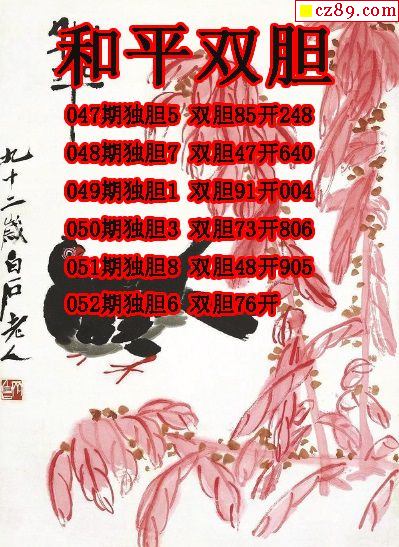 cz89.com
和平双胆
047期独胆5 双胆85开248
048期独胆7 双胆47开640
049期独胆1 双胆91开004
050期独胆3 双胆73开806
051期独胆8 双胆48开905
052期独胆6 双胆76开
九十二歲白石老人